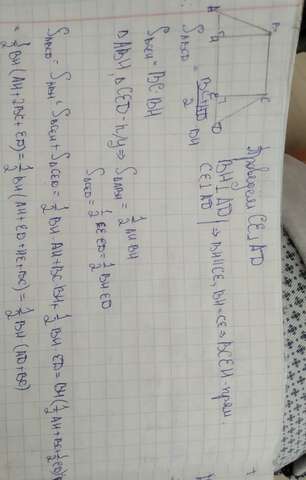 Проведём CE⊥AD
BH⊥AD | ⇒ BH||CE, BH=CE ⇒ BCEH-прям.
CE⊥AD |
B C
A H E D
S_ABCD = (BC+AD)/2 BH
S_BCEH = BC·BH
△ABH, △CED - п/у ⇒ S_△ABH = 1/2 AH·BH
S_△CED = 1/2 CE·ED = 1/2 BH·ED
S_ABCD = S_ABH + S_BCEH + S_CED = 1/2 BH·AH + BC·BH + 1/2 BH·ED = BH(1/2 AH + BC + 1/2 ED) =
= 1/2 BH (AH + 2BC + ED) = 1/2 BH (AH + ED + HE + BC) = 1/2 BH (AD + BC)